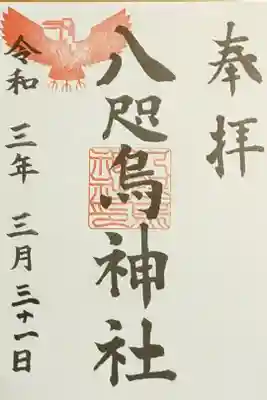 奉拝
八咫烏神社
令和三年三月三十一日